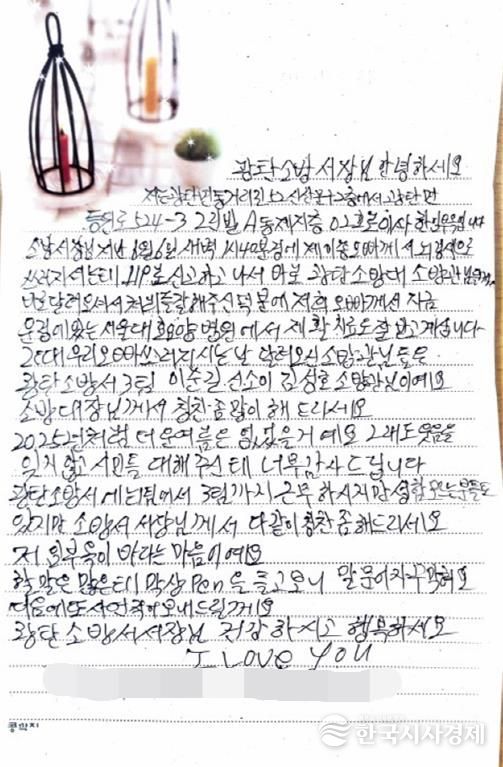 광탄소방서장님 안녕하세요
저는 광탄면
등원로 524-3 2리빌 A동 제지층 02호로 이사 한
소방서장님 지난 8월 6일 새벽 1시 40분경에 제 이종오빠께서 뇌경색으로
쓰러지셔는테 119로 신고하고 나서 바로 광탄 소방대 소방관님
달려오셔서 처치를 잘 해주신 덕분에 저희 오빠께서 지금
문경에 있는 서울대효요양병원에서 재활치료도 잘 받고 계십니다
그런대 우리 오빠 쓰러지시는 날 달려오신 소방관님들은
광탄 소방서 3팀 이순길 선소이 김성호 소방관님이예요
소방대장님께서 칭찬좀 많이 해 드리세요
2025년처럼 더운 여름은 없었을거예요 그래도 웃음을
잊지 않고 시민들 대해주신테 너무 감사드립니다
광탄소방서에 1팀에서 3팀까지 근무 하시지만 성함 모르는분들도
있지만 소방서 서장님께서 다같이 칭찬좀해드리세요
저 원부욱이 바라는 마음이예요
할 말은 많은테 막상 Pen을 들고보니 말문이 자꾸 막혀요
다음에 또 사연 적어 보내드릴께요
광탄 소방서 서장님 건강하시고 행복하세요
I LOVE YOU
콩깍지
한국시사경제